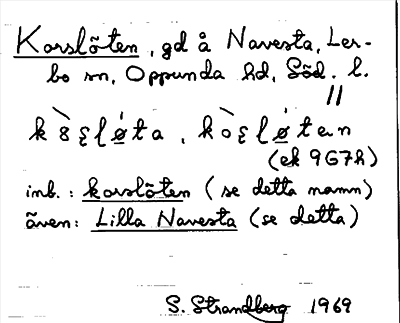 Korslöten, gd å Navesta, Ler-
bo sn, Oppunda hd, Söd. l.
(ek 9G7h)
inb.: korslöten (se detta namn)
även: Lilla Navesta (se detta)
S. Strandberg 1969